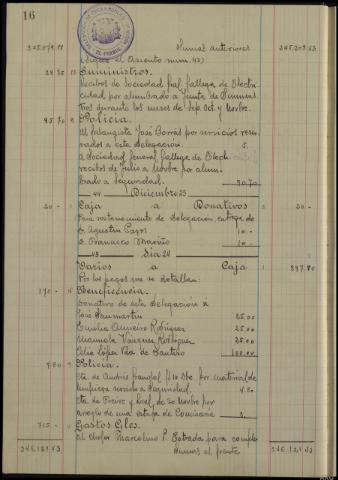 16
345.079.18 Sumas anteriores 345.203.83
(sigue el Asiento num. 43)
28.75 Suministros.
Recibos de Sociedad Gral. Gallega de Electri
cidad por alumbrado a Junta de Suminis
tros durante los meses de Sep. Oct. y Novbre.
85.70 Policia.
Al falangista José Borrás por servicios reser
vados a esta Delegacion. 5.
A Sociedad General Gallega de Elect
recibos de Julio a Novbre por alum
brado a Seguridad. 80.70
44 Diciembre 23
20 - Caja a Donativos 20 -
Para sostenimiento de Delegacion, entrega de
D. Agustin 10 -
D. Francisco Mariño 10 -
45 Dia 24
Varios a Caja 897.80
Por los pagos que se detallan:
170 - Beneficencia.
Donativo de esta Delegacion a
José Sanmartin 25.00
Emilia Rodriguez 25.00
Manuela Vazquez Rodriguez 25.00
Celia López Vda. de Santiso 100.00
Policia.
Fra. de Andrés 10 Dbre. por material de
limpieza servido a Seguridad. 4.80
Fra. de Freire y Leal, de 20 Novbre por
arreglo de una estufa de Comisaria
715 - Gastos Gles.
Al chofer Marcelino P. Estrada para comple
346.121.43 Sumas al frente 346.121.43